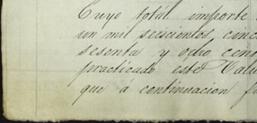 Cuyo total importe
un mil seiscientos, cinc
sesenta y ocho cent
practicado este Valu
que á continuacion f